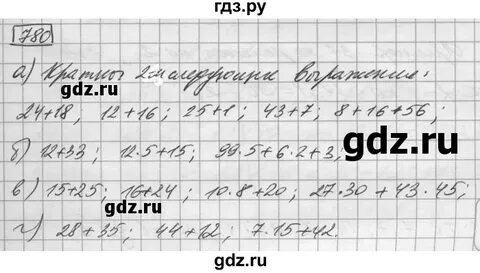 гдз.ру
780
а) Кратны 2-м следующие выражения:
24+18, 12+16; 25+1; 43+7; 8+16+56;
б) 12+33; 12·5+15; 99·5+6·2+3;
gdz.ru
в) 15+25; 16+24; 10·8+20; 27·30+43·45;
gdz.ru
г) 28+35; 44+12; 7·15+42.
gdz.ru
gdz.ru